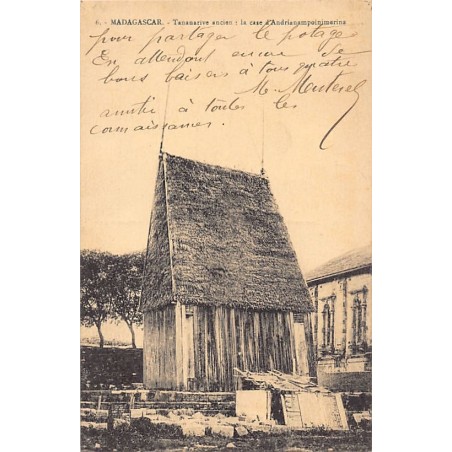 6. - MADAGASCAR. - Tananarive ancien : la case d'Andrianampoinimerina
pour partager le potage
En attendant encore de
bons baisers à tous quatre
M. Monterel
amitié à toutes les
connaissances.